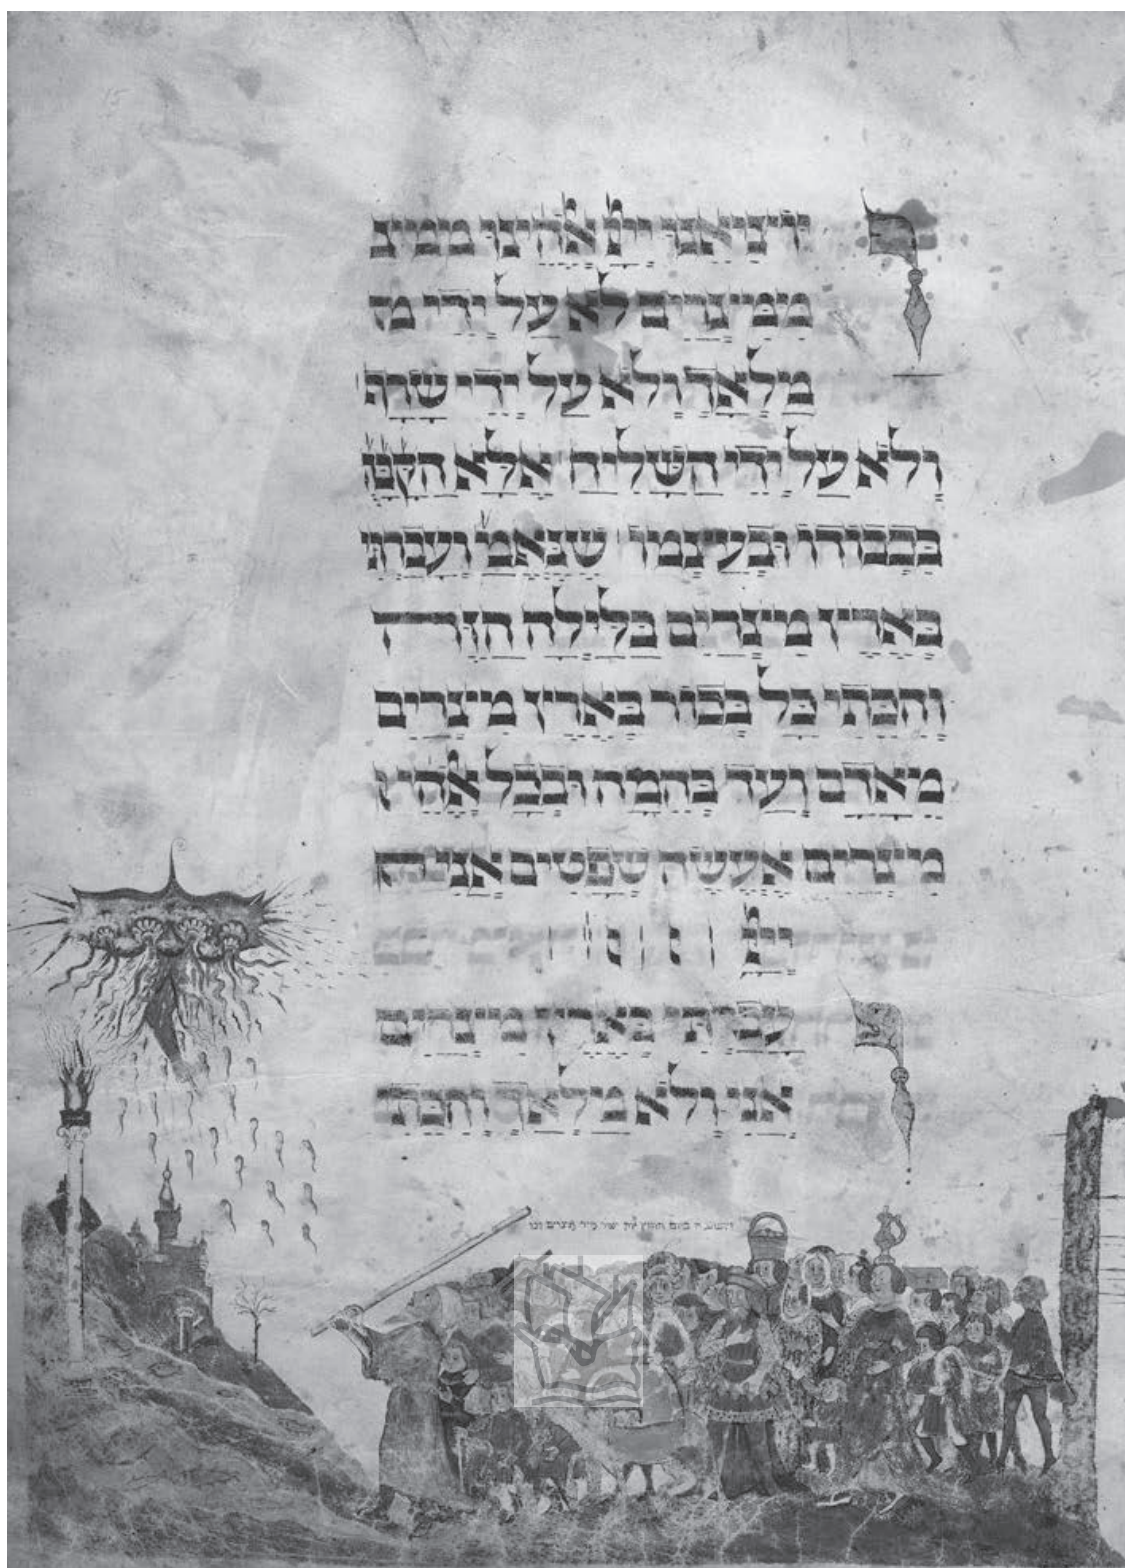 ויוציאנו יי אלהינו ממיצ
ממיצרים לא על ידי מ
מלאך ולא על ידי שרף
ולא על ידי השליח אלא הקבה
בכבודו ובעצמו שנאמ ועברתי
בארץ מיצרים בלילה הזה
והכתי כל בכור בארץ מיצרים
מאדם ועד בהמה ובכל אלהי
מיצרים אעשה שפטים אני
יי
ועברתי בארץ מיצרים
אני ולא מלאך והכתי
ויושע יי ביום ההוא את ישר מיד מצרים וגו